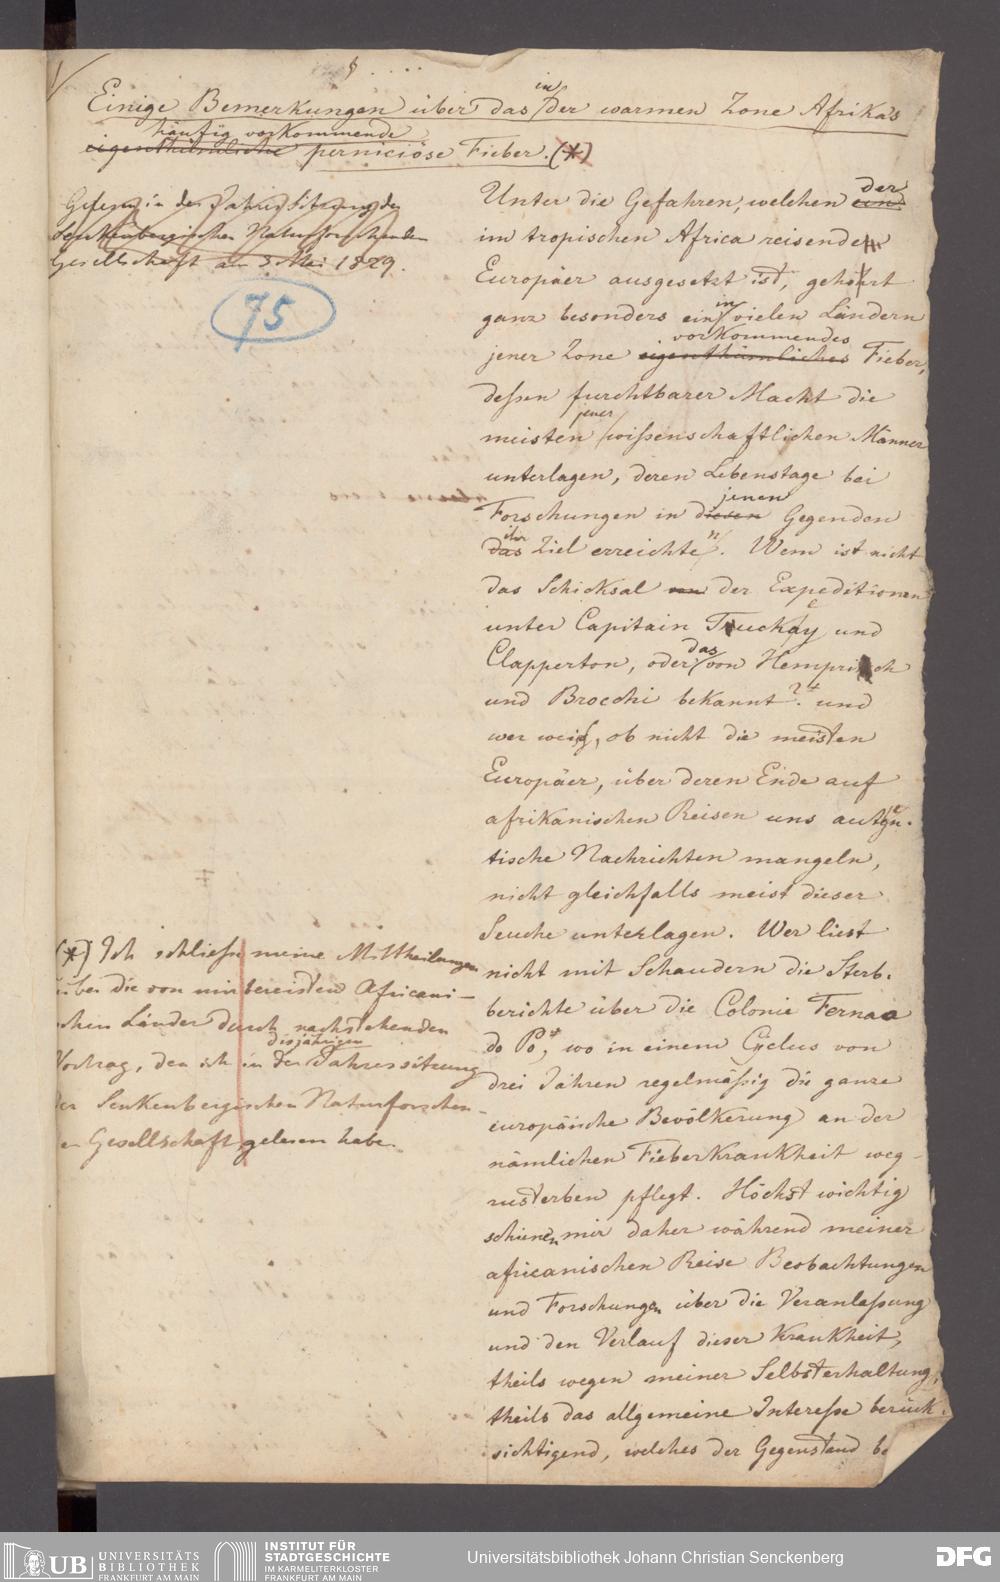 Einige Bemerkungen über das in der warmen Zone Afrika's
häufig vorkommende
eigenthümliche perniciöse Fieber. (*)
Gelesen in der Jahressitzung der
Senkenbergischen Naturforschenden
Gesellschaft am 3 Mai 1829.
75
Unter die Gefahren, welchen der
im tropischen Africa reisende
Europäer ausgesetzt ist, gehört
ganz besonders ein in vielen Ländern
vorkommendes
jener Zone eigenthümliches Fieber,
deßen furchtbarer Macht die
meisten jener wißenschaftlichen Männer
unterlagen, deren Lebenstage bei
jenen
Forschungen in diesen Gegenden
ihr
das Ziel erreichten. Wem ist nicht
das Schicksal von der Expeditionen
unter Capitain Tuckey und
Clapperton, oder das von Hemprich
und Brocchi bekannt? und
wer weiß, ob nicht die meisten
Europäer, über deren Ende auf
afrikanischen Reisen uns
tische Nachrichten mangeln,
nicht gleichfalls meist dieser
Seuche unterlagen. Wer liest
nicht mit Schaudern die Sterb-
berichte über die Colonie Fernao
do Po, wo in einem Cyclus von
drei Jahren regelmäßig die ganze
europäische Bevölkerung an der
nämlichen Fieberkrankheit weg-
zusterben pflegt. Höchst wichtig
schienen mir daher während meiner
africanischen Reise Beobachtungen
und Forschungen über die Veranlaßung
und den Verlauf dieser Krankheit,
theils wegen meiner Selbsterhaltung,
theils das allgemeine Intereße berück-
sichtigend, welches der Gegenstand be
(*) Ich schließe meine Mittheilungen
über die von mir bereisten Africani-
schen Länder durch nachstehenden
diesjährigen
Vortrag, den ich in der Jahressitzung
der Senkenbergischen Naturforschen-
en Gesellschaft gelesen habe.
UB UNIVERSITÄTS
BIBLIOTHEK
FRANKFURT AM MAIN
INSTITUT FÜR
STADTGESCHICHTE
IM KARMELITERKLOSTER
FRANKFURT AM MAIN
Universitätsbibliothek Johann Christian Senckenberg
DFG